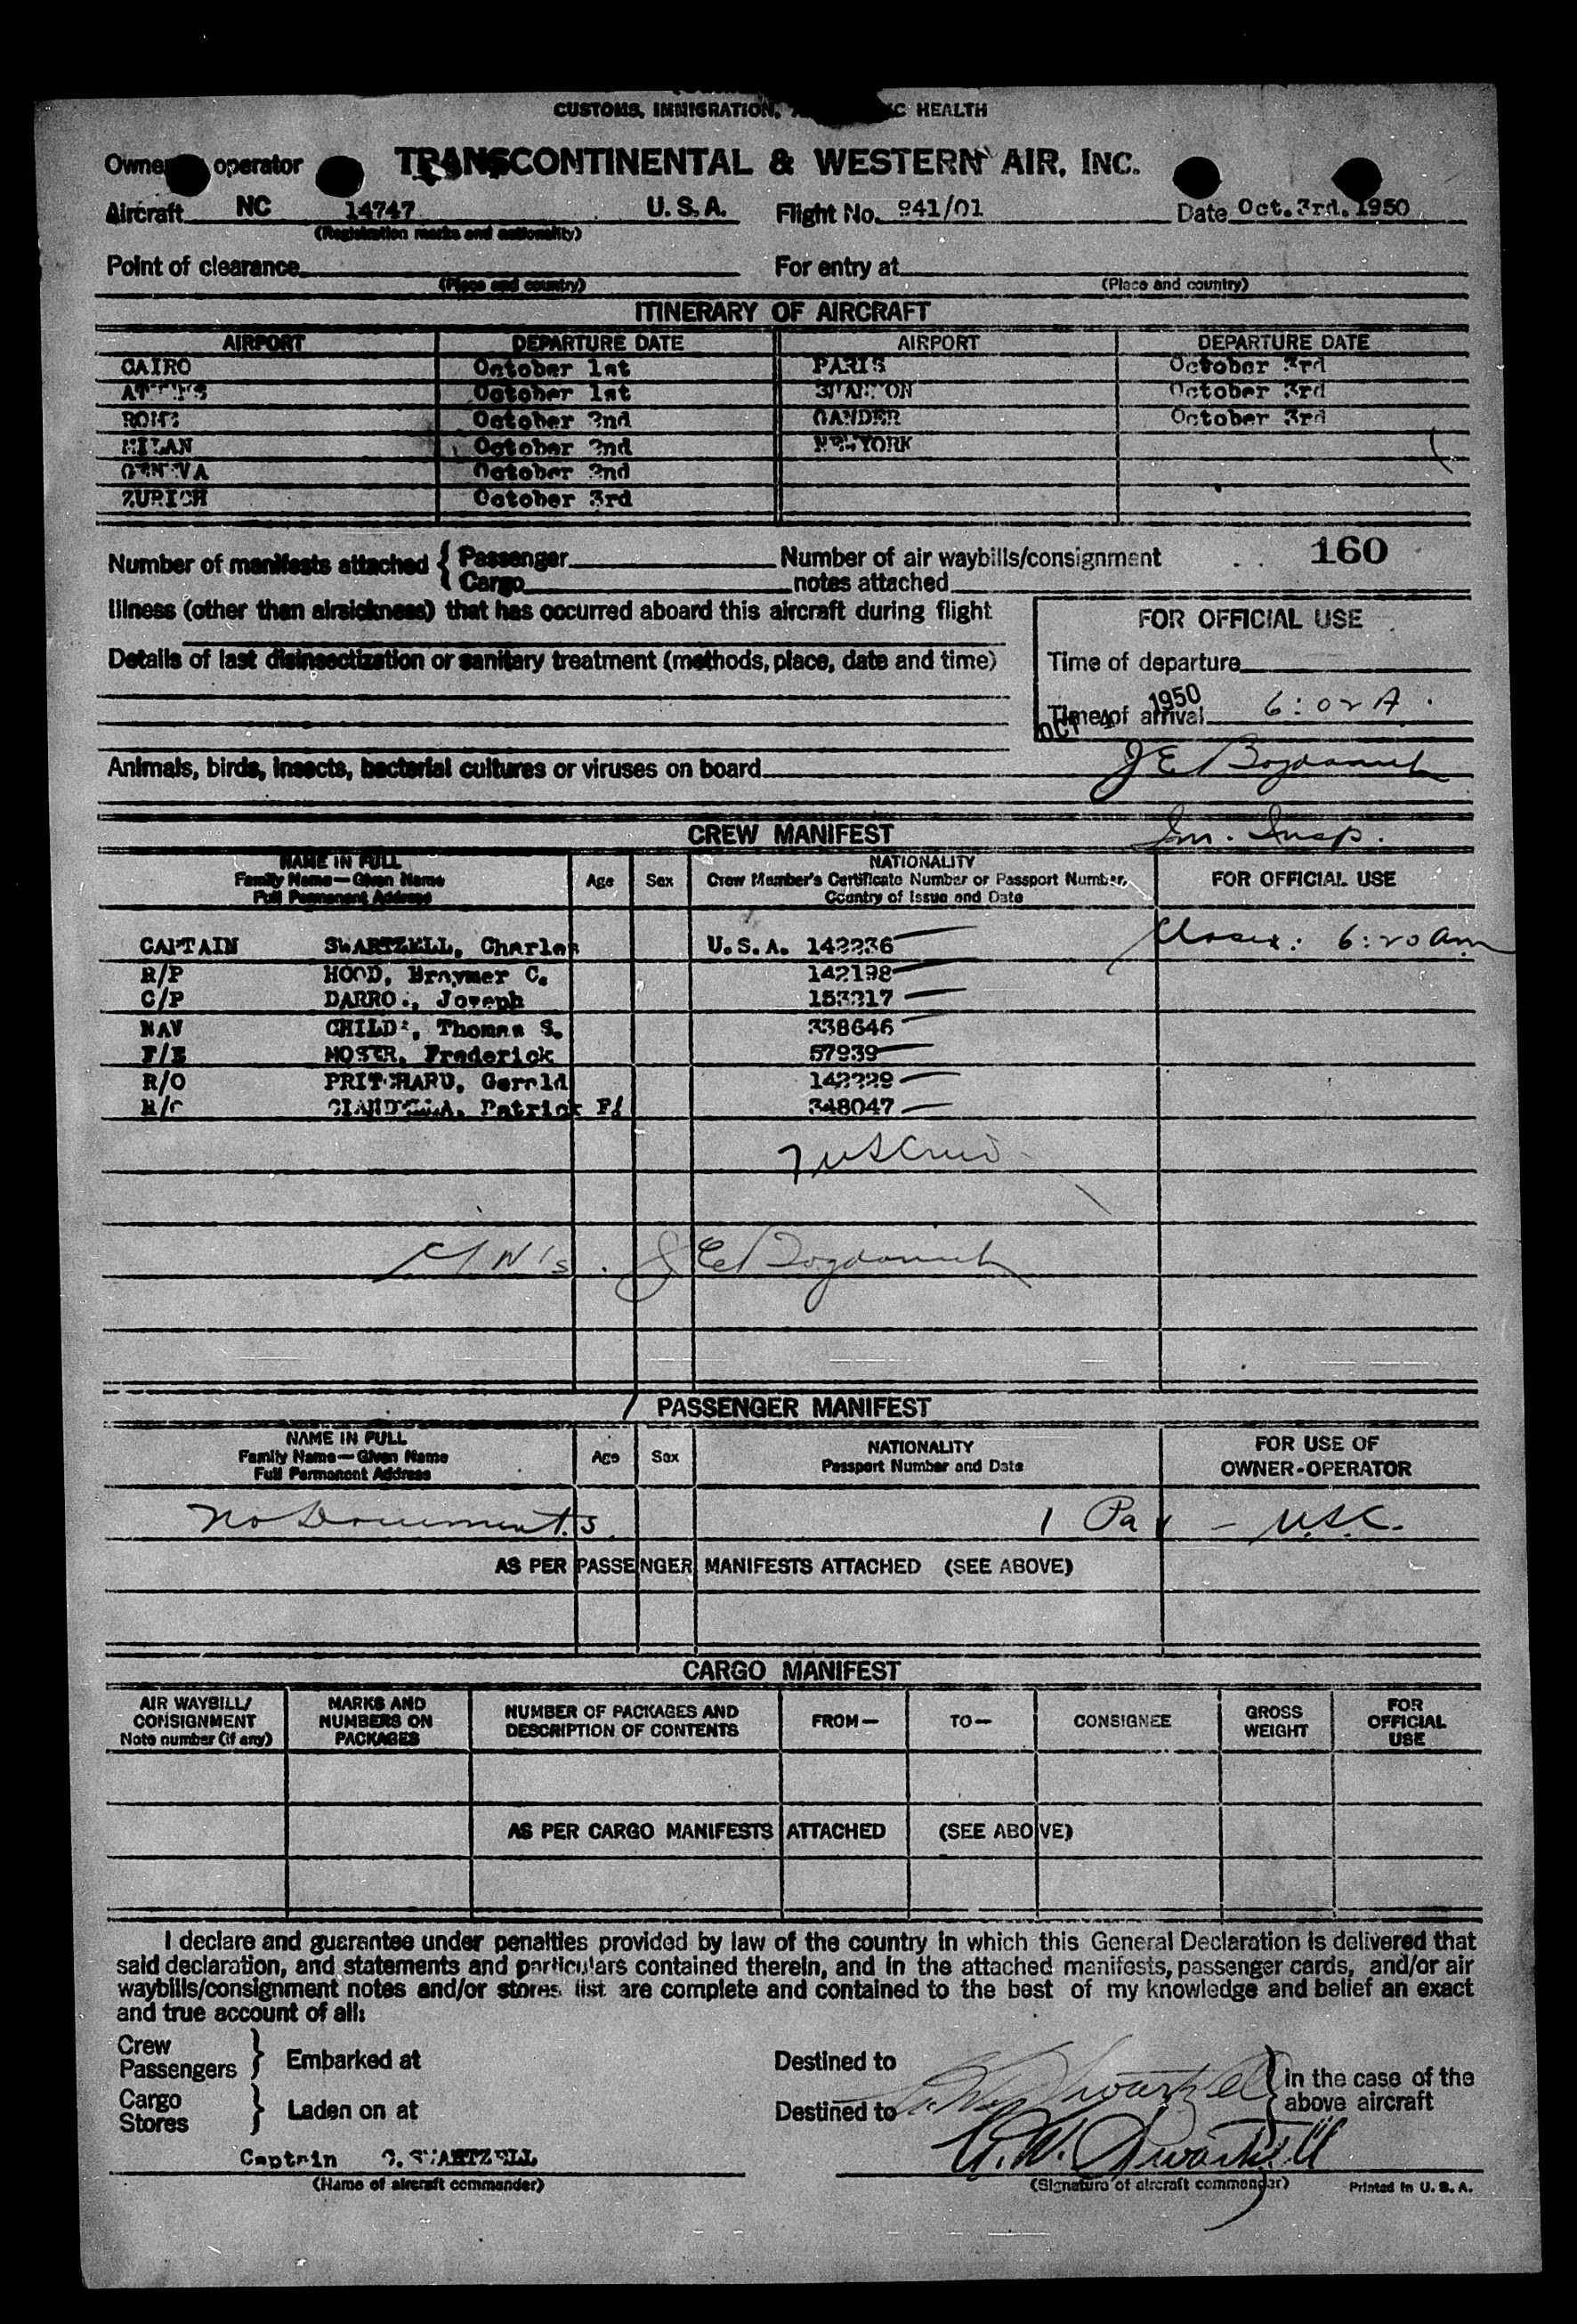 CUSTOMS, IMMIGRATION, HEALTH
operator TRANSCONTINENTAL & WESTERN AIR, INC.
Aircraft NC 14747 U.S.A. Flight No. 941/01 Date Oct. 3rd. 1950
(Registration marks and nationality)
Point of clearance For entry at
(Place and country) (Place and country)
ITINERARY OF AIRCRAFT
AIRPORT DEPARTURE DATE AIRPORT DEPARTURE DATE
CAIRO October 1st PARIS October 3rd
ATHENS October 1st SHANNON October 3rd
ROME October 2nd GANDER October 3rd
MILAN October 2nd NEW YORK
GENEVA October 2nd
ZURICH October 3rd
Number of manifests attached { Passenger Number of air waybills/consignment 160
Cargo notes attached
Illness (other than airsickness) that has occurred aboard this aircraft during flight
FOR OFFICIAL USE
Details of last disinsectization or sanitary treatment (methods, place, date and time)
Time of departure
OCT 4 1950
Time of arrival 6:02 A.
Animals, birds, insects, bacterial cultures or viruses on board
Im. Insp.
CREW MANIFEST
NAME IN FULL
Family Name—Given Name
Full Permanent Address
Age Sex
NATIONALITY
Crew Member's Certificate Number or Passport Number,
Country of Issue and Date
FOR OFFICIAL USE
CAPTAIN SWARTZELL, Charles U.S.A. 142236 6:20 am
R/P HOOD, Braymer C. 142198
C/P Joseph 153217
NAV CHILDS, Thomas S. 338646
F/E MOSER, Frederick 57939
R/O PRITCHARD, Gerald 142229
Patrick F. 348047
PASSENGER MANIFEST
NAME IN FULL
Family Name—Given Name
Full Permanent Address
Age Sex
NATIONALITY
Passport Number and Date
FOR USE OF
OWNER-OPERATOR
No Documents. 1 Pax – U.S.C.
AS PER PASSENGER MANIFESTS ATTACHED (SEE ABOVE)
CARGO MANIFEST
AIR WAYBILL/
CONSIGNMENT
Note number (if any)
MARKS AND
NUMBERS ON
PACKAGES
NUMBER OF PACKAGES AND
DESCRIPTION OF CONTENTS
FROM— TO— CONSIGNEE
GROSS
WEIGHT
FOR
OFFICIAL
USE
AS PER CARGO MANIFESTS ATTACHED (SEE ABOVE)
I declare and guarantee under penalties provided by law of the country in which this General Declaration is delivered that
said declaration, and statements and particulars contained therein, and in the attached manifests, passenger cards, and/or air
waybills/consignment notes and/or stores list are complete and contained to the best of my knowledge and belief an exact
and true account of all:
Crew
Passengers } Embarked at Destined to
Cargo
Stores } Laden on at Destined to
} in the case of the
above aircraft
Captain C. SWARTZELL C.W. Swartzell
(Name of aircraft commander) (Signature of aircraft commander) Printed in U.S.A.